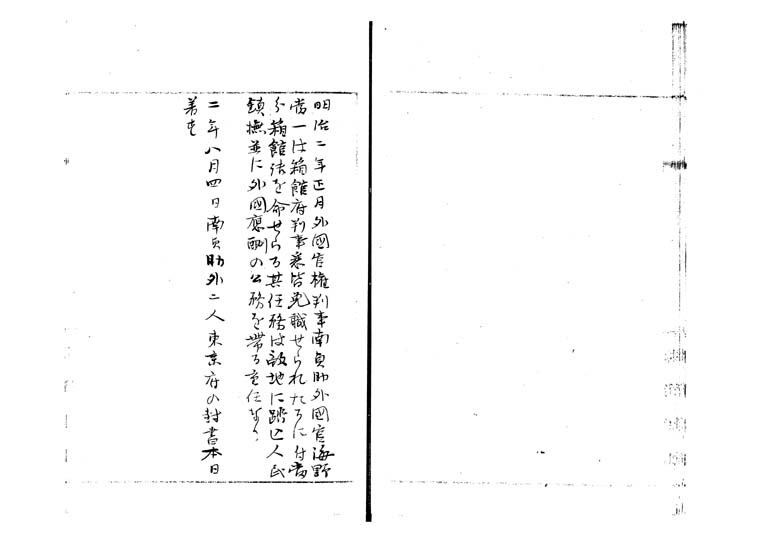 明治二年正月外國官権判事南貞助外國官海野
当一は箱館府判事悉皆免職せられたるに付当
分箱館詰を命せらる其任務は敵地に踏込人民
鎮撫並に外國應酬の公務を帯る重任なり
二年八月四日南貞助外二人東京府の封書本日
着す